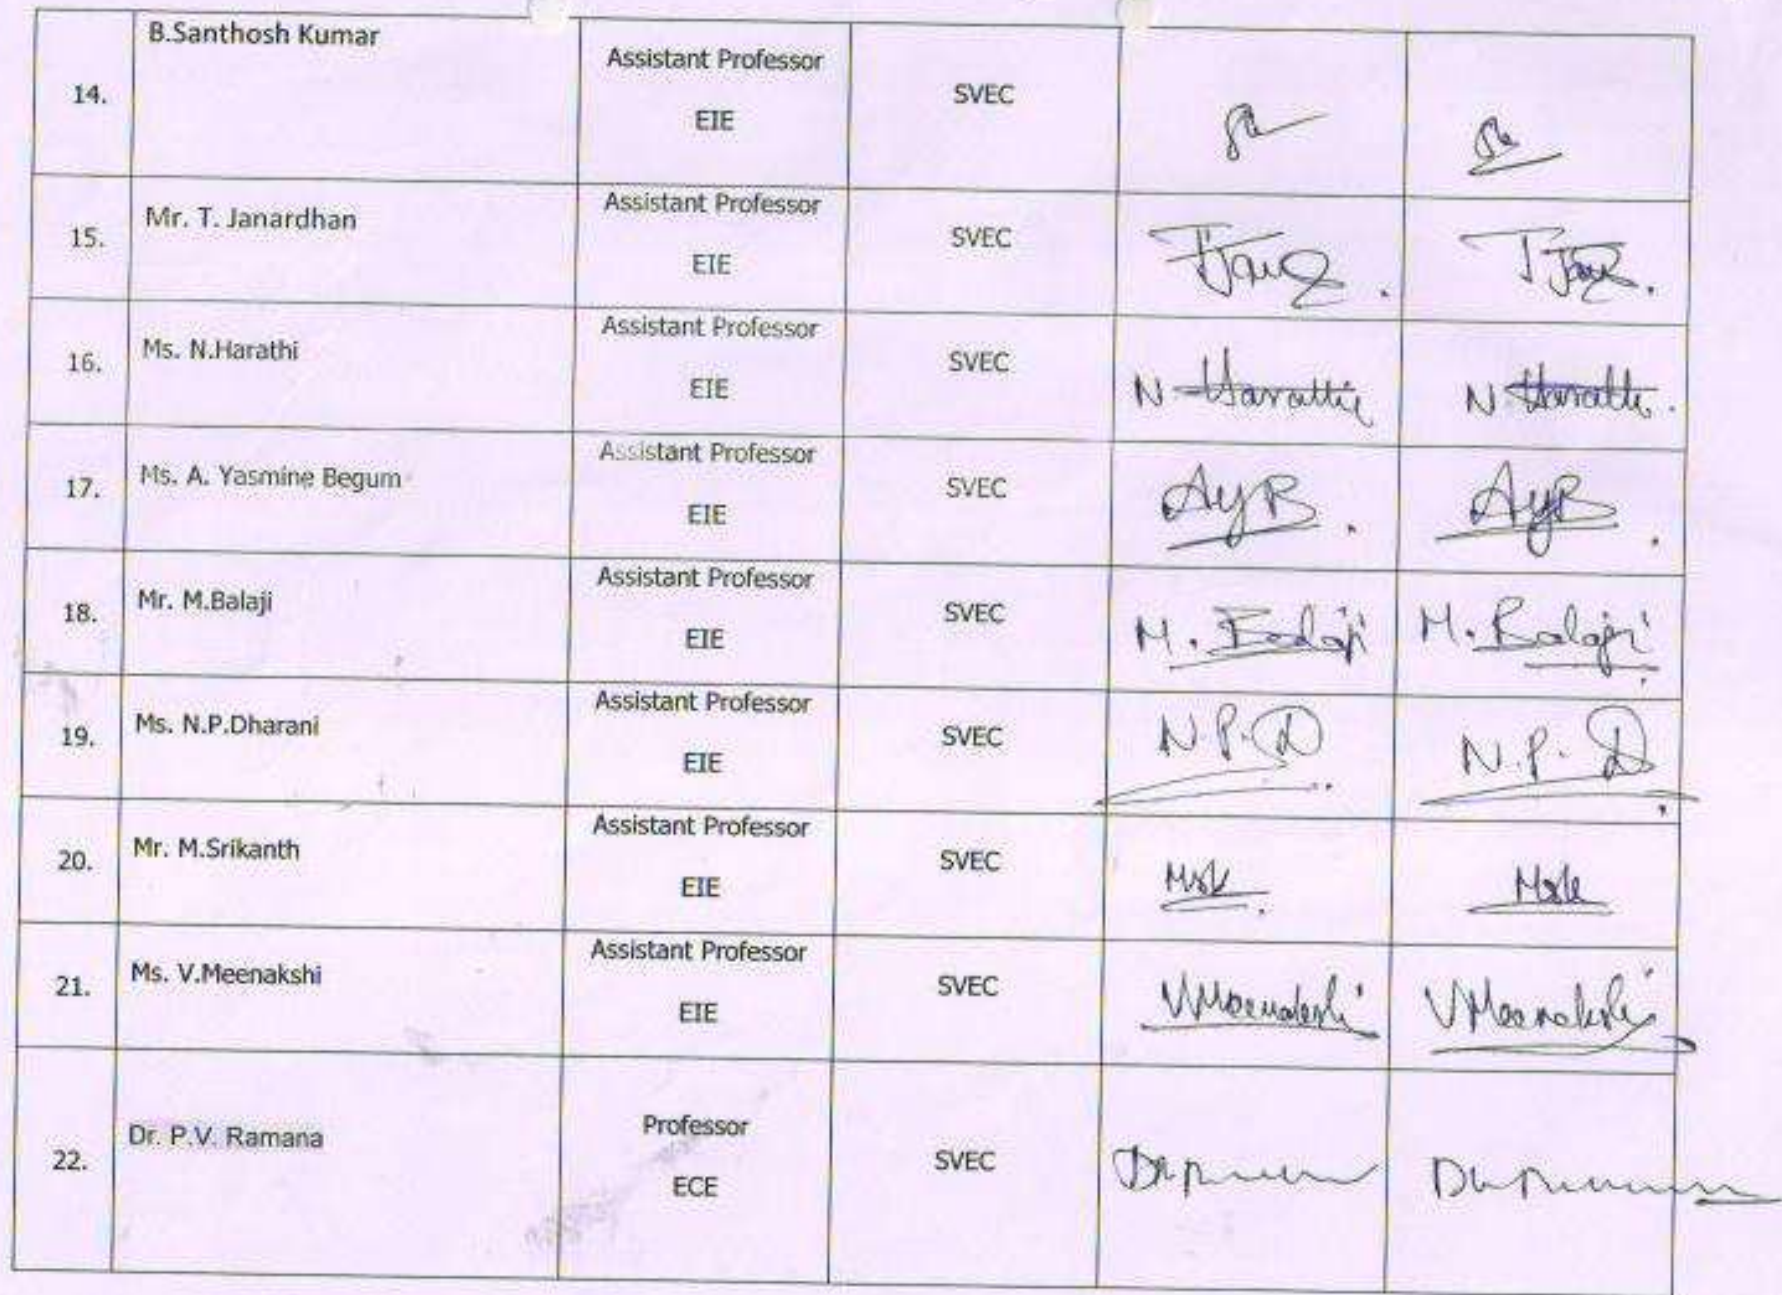 14.
B.Santhosh Kumar
Assistant Professor
EIE
SVEC
15.
Mr. T. Janardhan
Assistant Professor
EIE
SVEC
16.
Ms. N.Harathi
Assistant Professor
EIE
SVEC
N. Harathi
N. Harathi.
17.
Ms. A. Yasmine Begum
Assistant Professor
EIE
SVEC
AYB.
AYB.
18.
Mr. M.Balaji
Assistant Professor
EIE
SVEC
M. Balaji
M. Balaji
19.
Ms. N.P.Dharani
Assistant Professor
EIE
SVEC
N.P.D
N.P.D
20.
Mr. M.Srikanth
Assistant Professor
EIE
SVEC
21.
Ms. V.Meenakshi
Assistant Professor
EIE
SVEC
VMeenakshi
VMeenakshi
22.
Dr. P.V. Ramana
Professor
ECE
SVEC